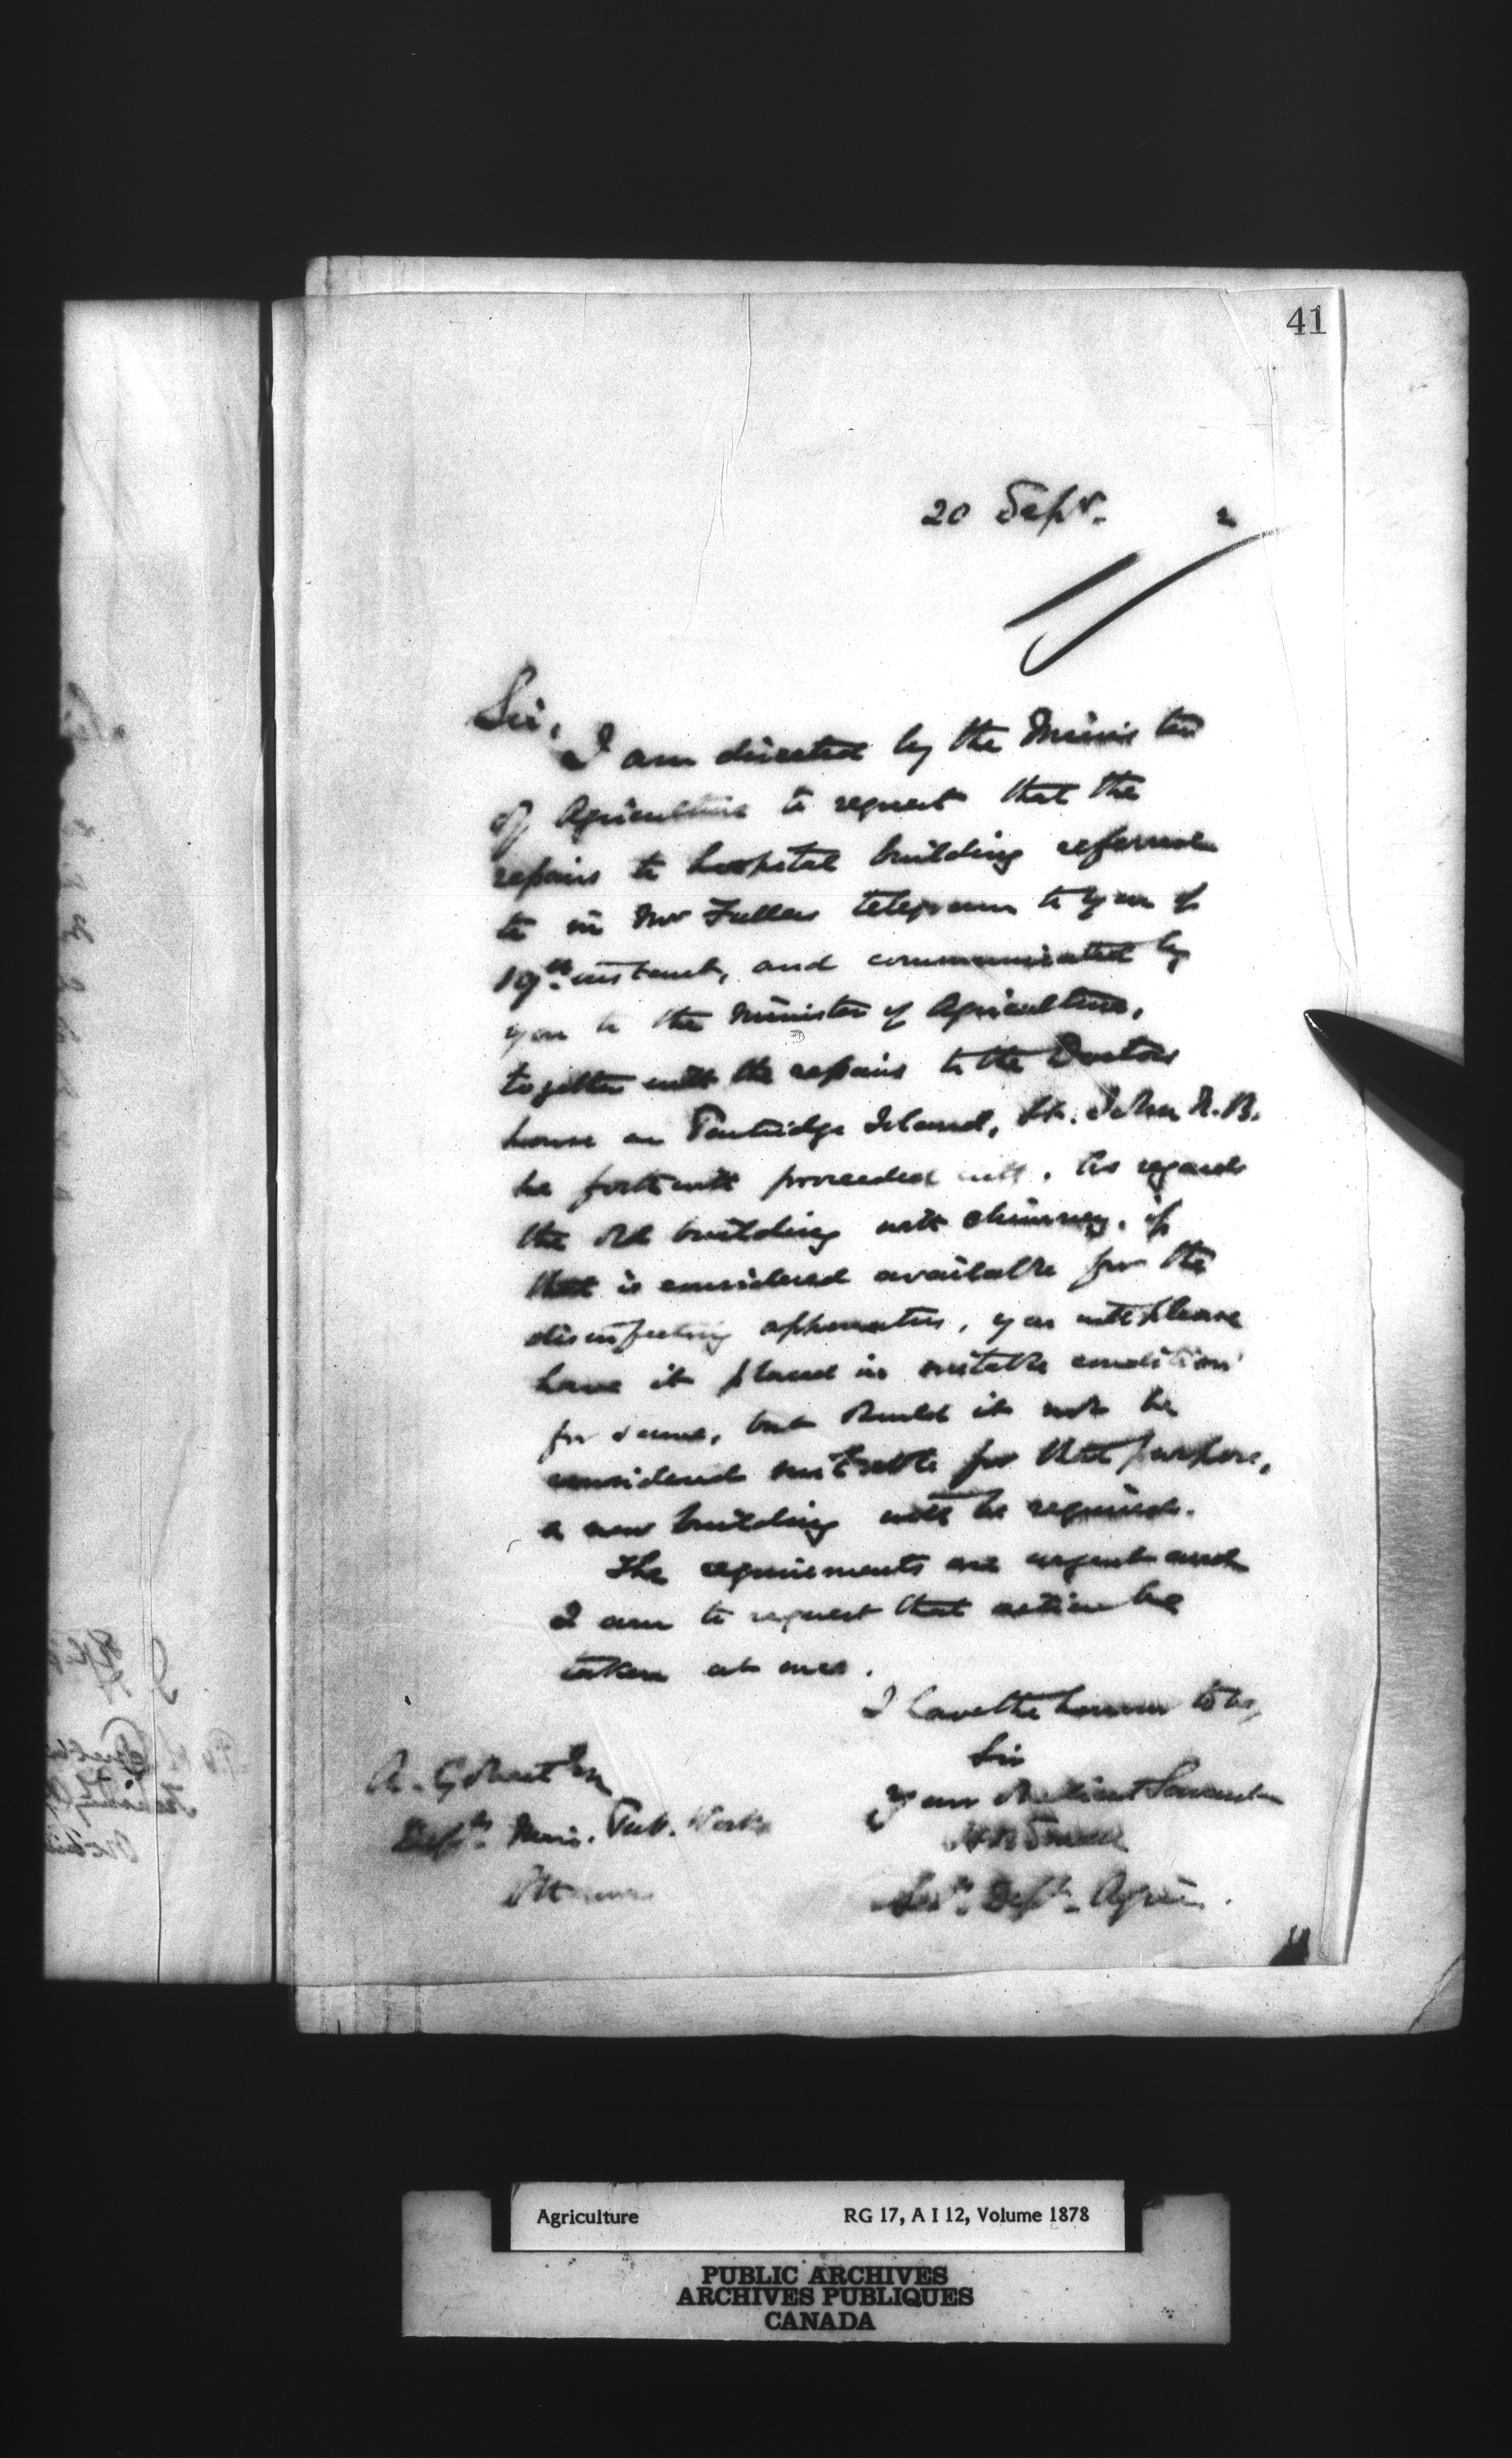 41
20 Sept. 2
Sir,
I am directed by the Minister
of Agriculture to request that the
repairs to hospital building referred
to in Mr Fullers telegram to you of
19th instant, and communicated by
you to the Minister of Agriculture,
together with the repairs to the Doctors
house on Partridge Island, St. John N.B.
be forthwith proceeded with. As regards
the old building with chimney, if
that is considered available for the
disinfecting apparatus, you will please
have it placed in suitable condition
for same, but should it not be
considered suitable for that purpose,
a new building will be required.
The requirements are urgent and
I am to request that action be
taken at once.
I have the honour to be,
Sir
Your Obedient Servant
H B Small
Secy. Dept. Agric.
A. Gobeil Esq
Depty. Minis. Pub. Works
Ottawa
Agriculture RG 17, A I 12, Volume 1878
PUBLIC ARCHIVES
ARCHIVES PUBLIQUES
CANADA